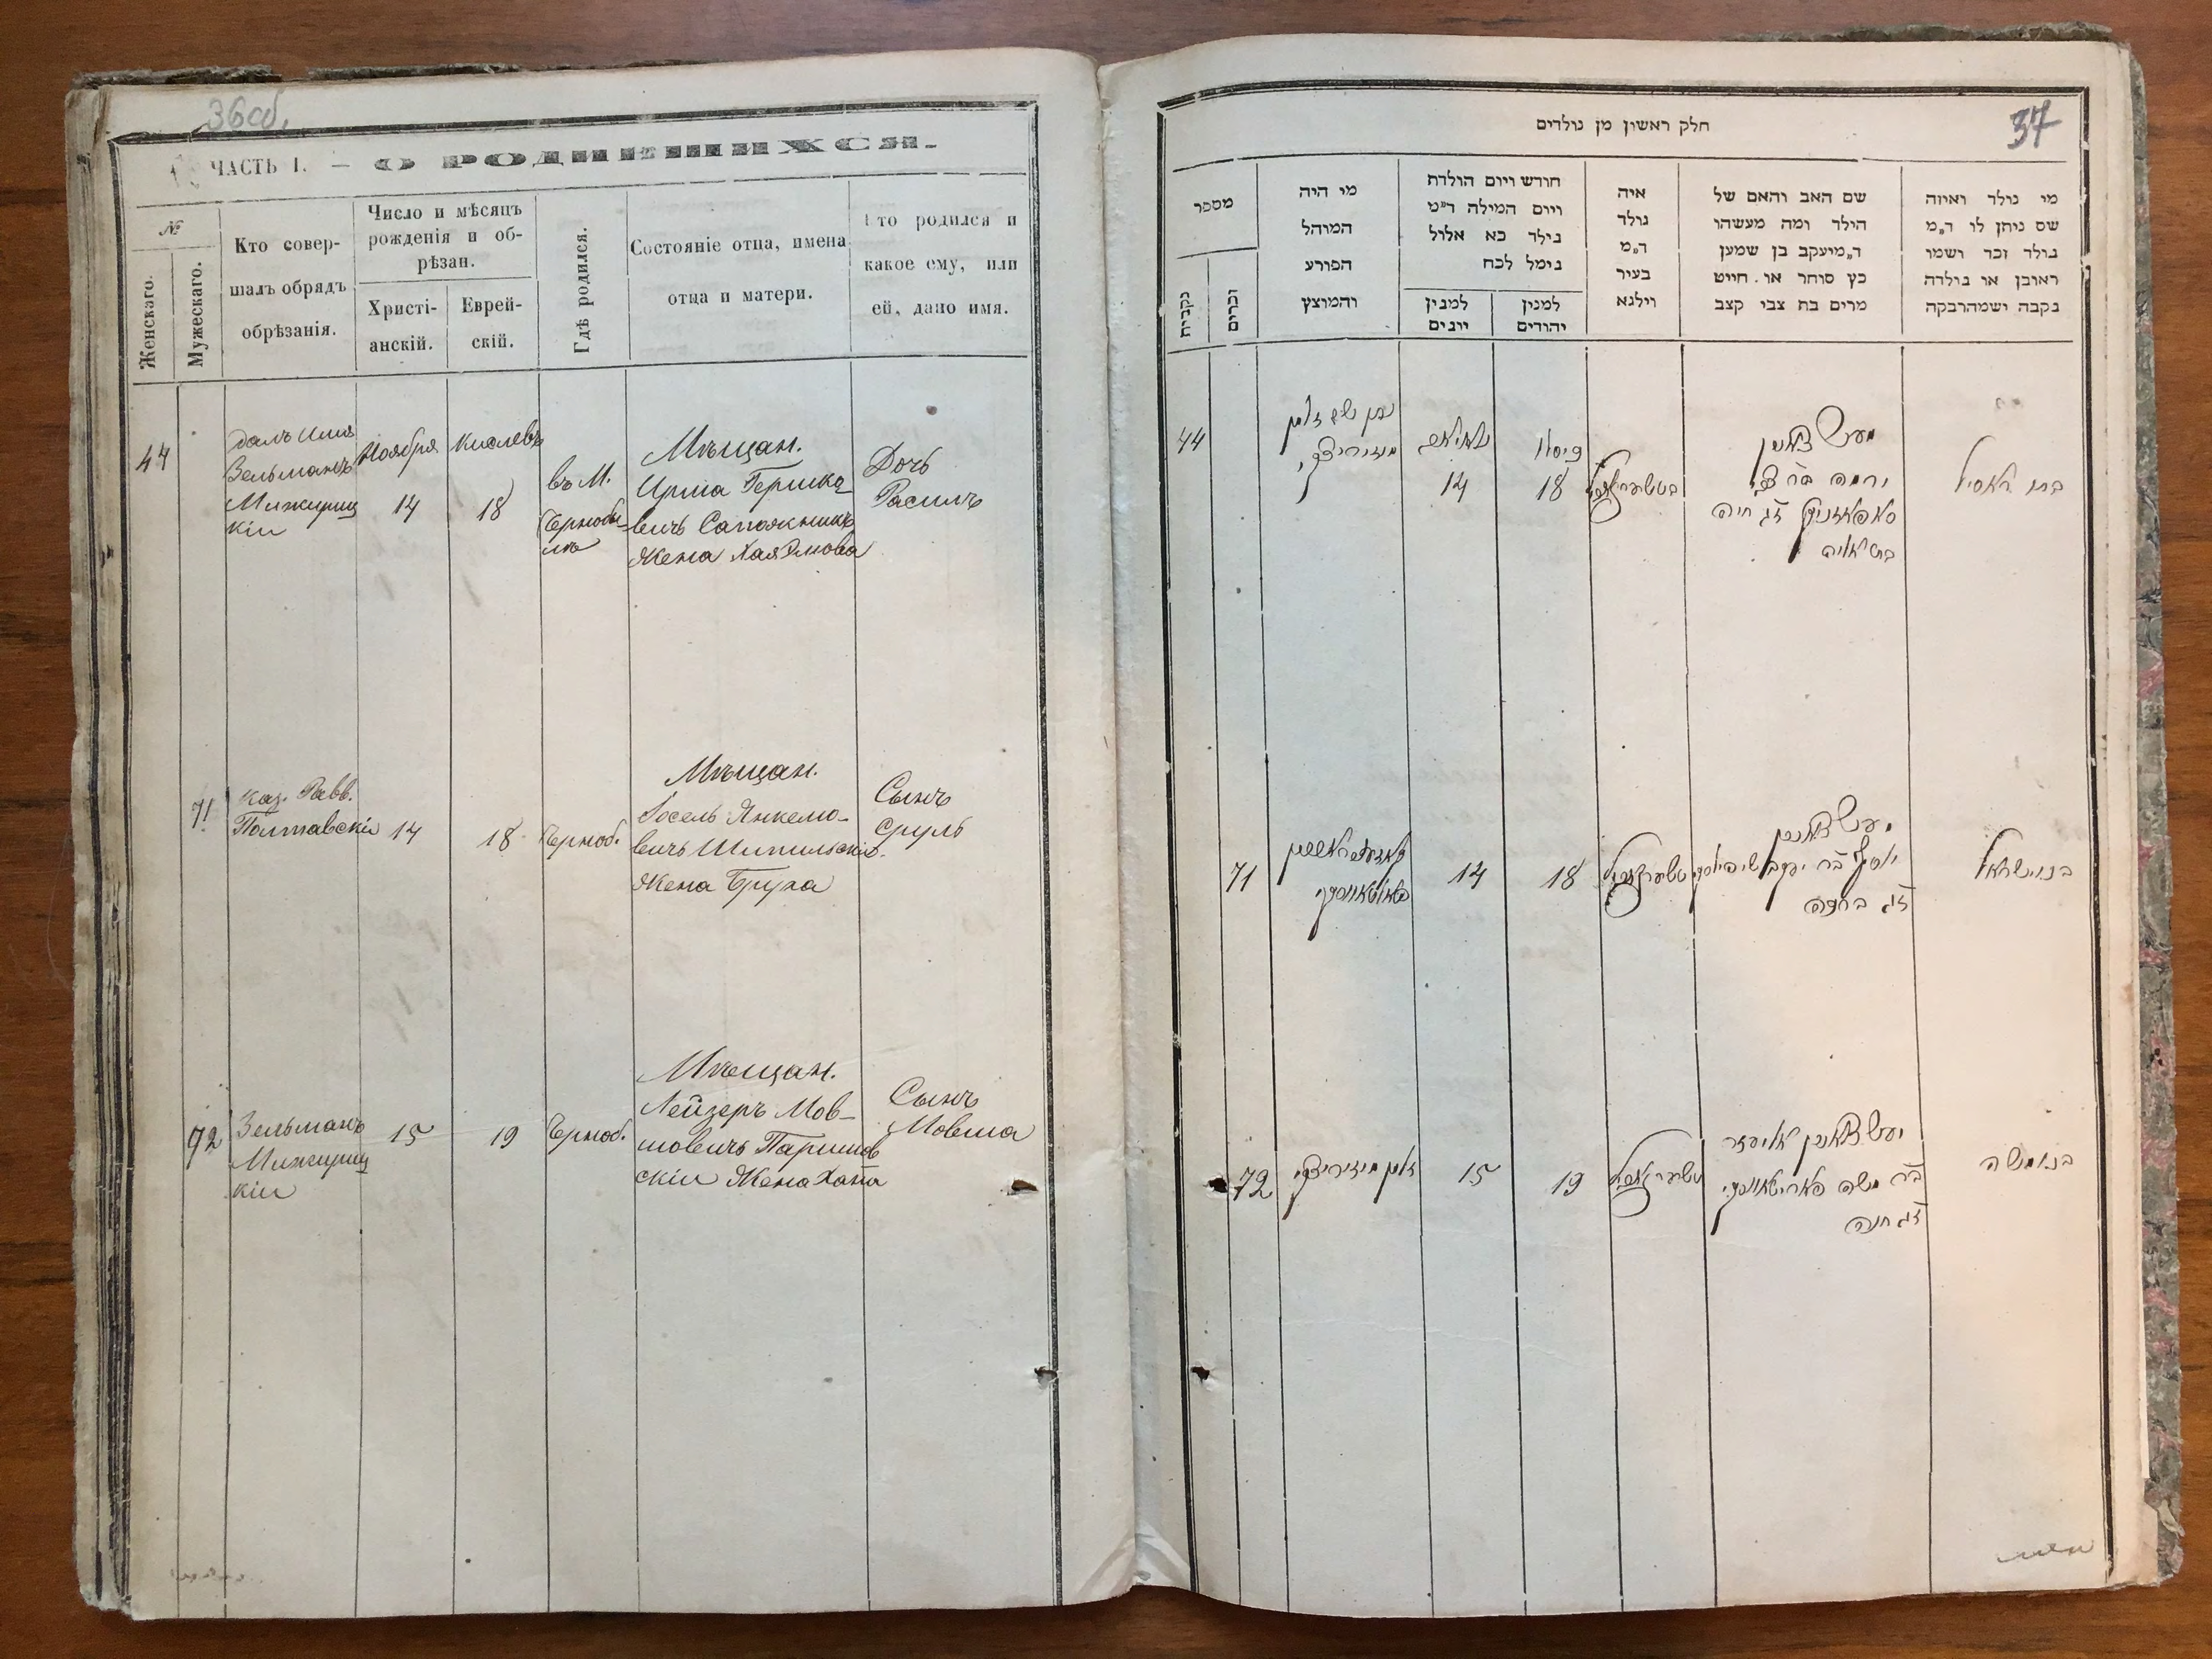 36об.
ЧАСТЬ I. — О РОДИВШИХСЯ.
№
Женскаго.
Мужескаго.
Кто совер-
шалъ обрядъ
обрѣзанія.
Число и мѣсяцъ
рожденія и об-
рѣзан.
Христі-
анскій.
Еврей-
скій.
Гдѣ родился.
Состояніе отца, имена
отца и матери.
Кто родился и
какое ему, или
ей, дано имя.
44
далъ имя
Зельманъ
Межириц
кій
Ноября
14
Кислевъ
18
въ М.
Чернобы-
лѣ
Мѣщан.
Ирма Гершко-
вичъ Сапожникъ
Жена Хая Элиова
Дочь
Расиль
71
каз. Равв.
Полтавскій
14
18
Черноб.
Мѣщан.
Іосель Янкелю-
вичъ Шипильскій.
Жена Бруха
Сынъ
Сруль
72
Зельманъ
Межириц
кій
15
19
Черноб.
Мѣщан.
Лейзеръ Мов-
шовичъ Паришов
скій Жена Хана
Сынъ
Мовша
37
חלק ראשון מן נולדים
מספר
נקבות
זכרים
מי היה
המוהל
הפורע
והמוצץ
חורש ויום הולדת
ויום המילה ד״מ
נילד כא אלול
נימל לכח
למנין
יונים
למנין
יהודים
איה
נולד
ד״מ
בעיר
וילנא
שם האב והאם של
הילד ומה מעשהו
ד״מיעקב בן שמען
כץ סוחר או. חייט
מרים בת צבי קצב
מי נולד ואיזה
שם ניתן לו ד״מ
נולד זכר ושמו
ראובן או נולדה
נקבה ושמהרבקה
44
נתן שם זלמן
מיזיריצקי
14
18
ירמה בר צבי
סאפאזניק זג חיה
בת אליה
בתו ראסיל
71
14
18
יוסף בר יעקב שיפילסקי
זג ברכה
בנו ישראל
72
זלמן מיזיריצקי
15
19
אליעזר
בר משה
זג חנה
בנו משה